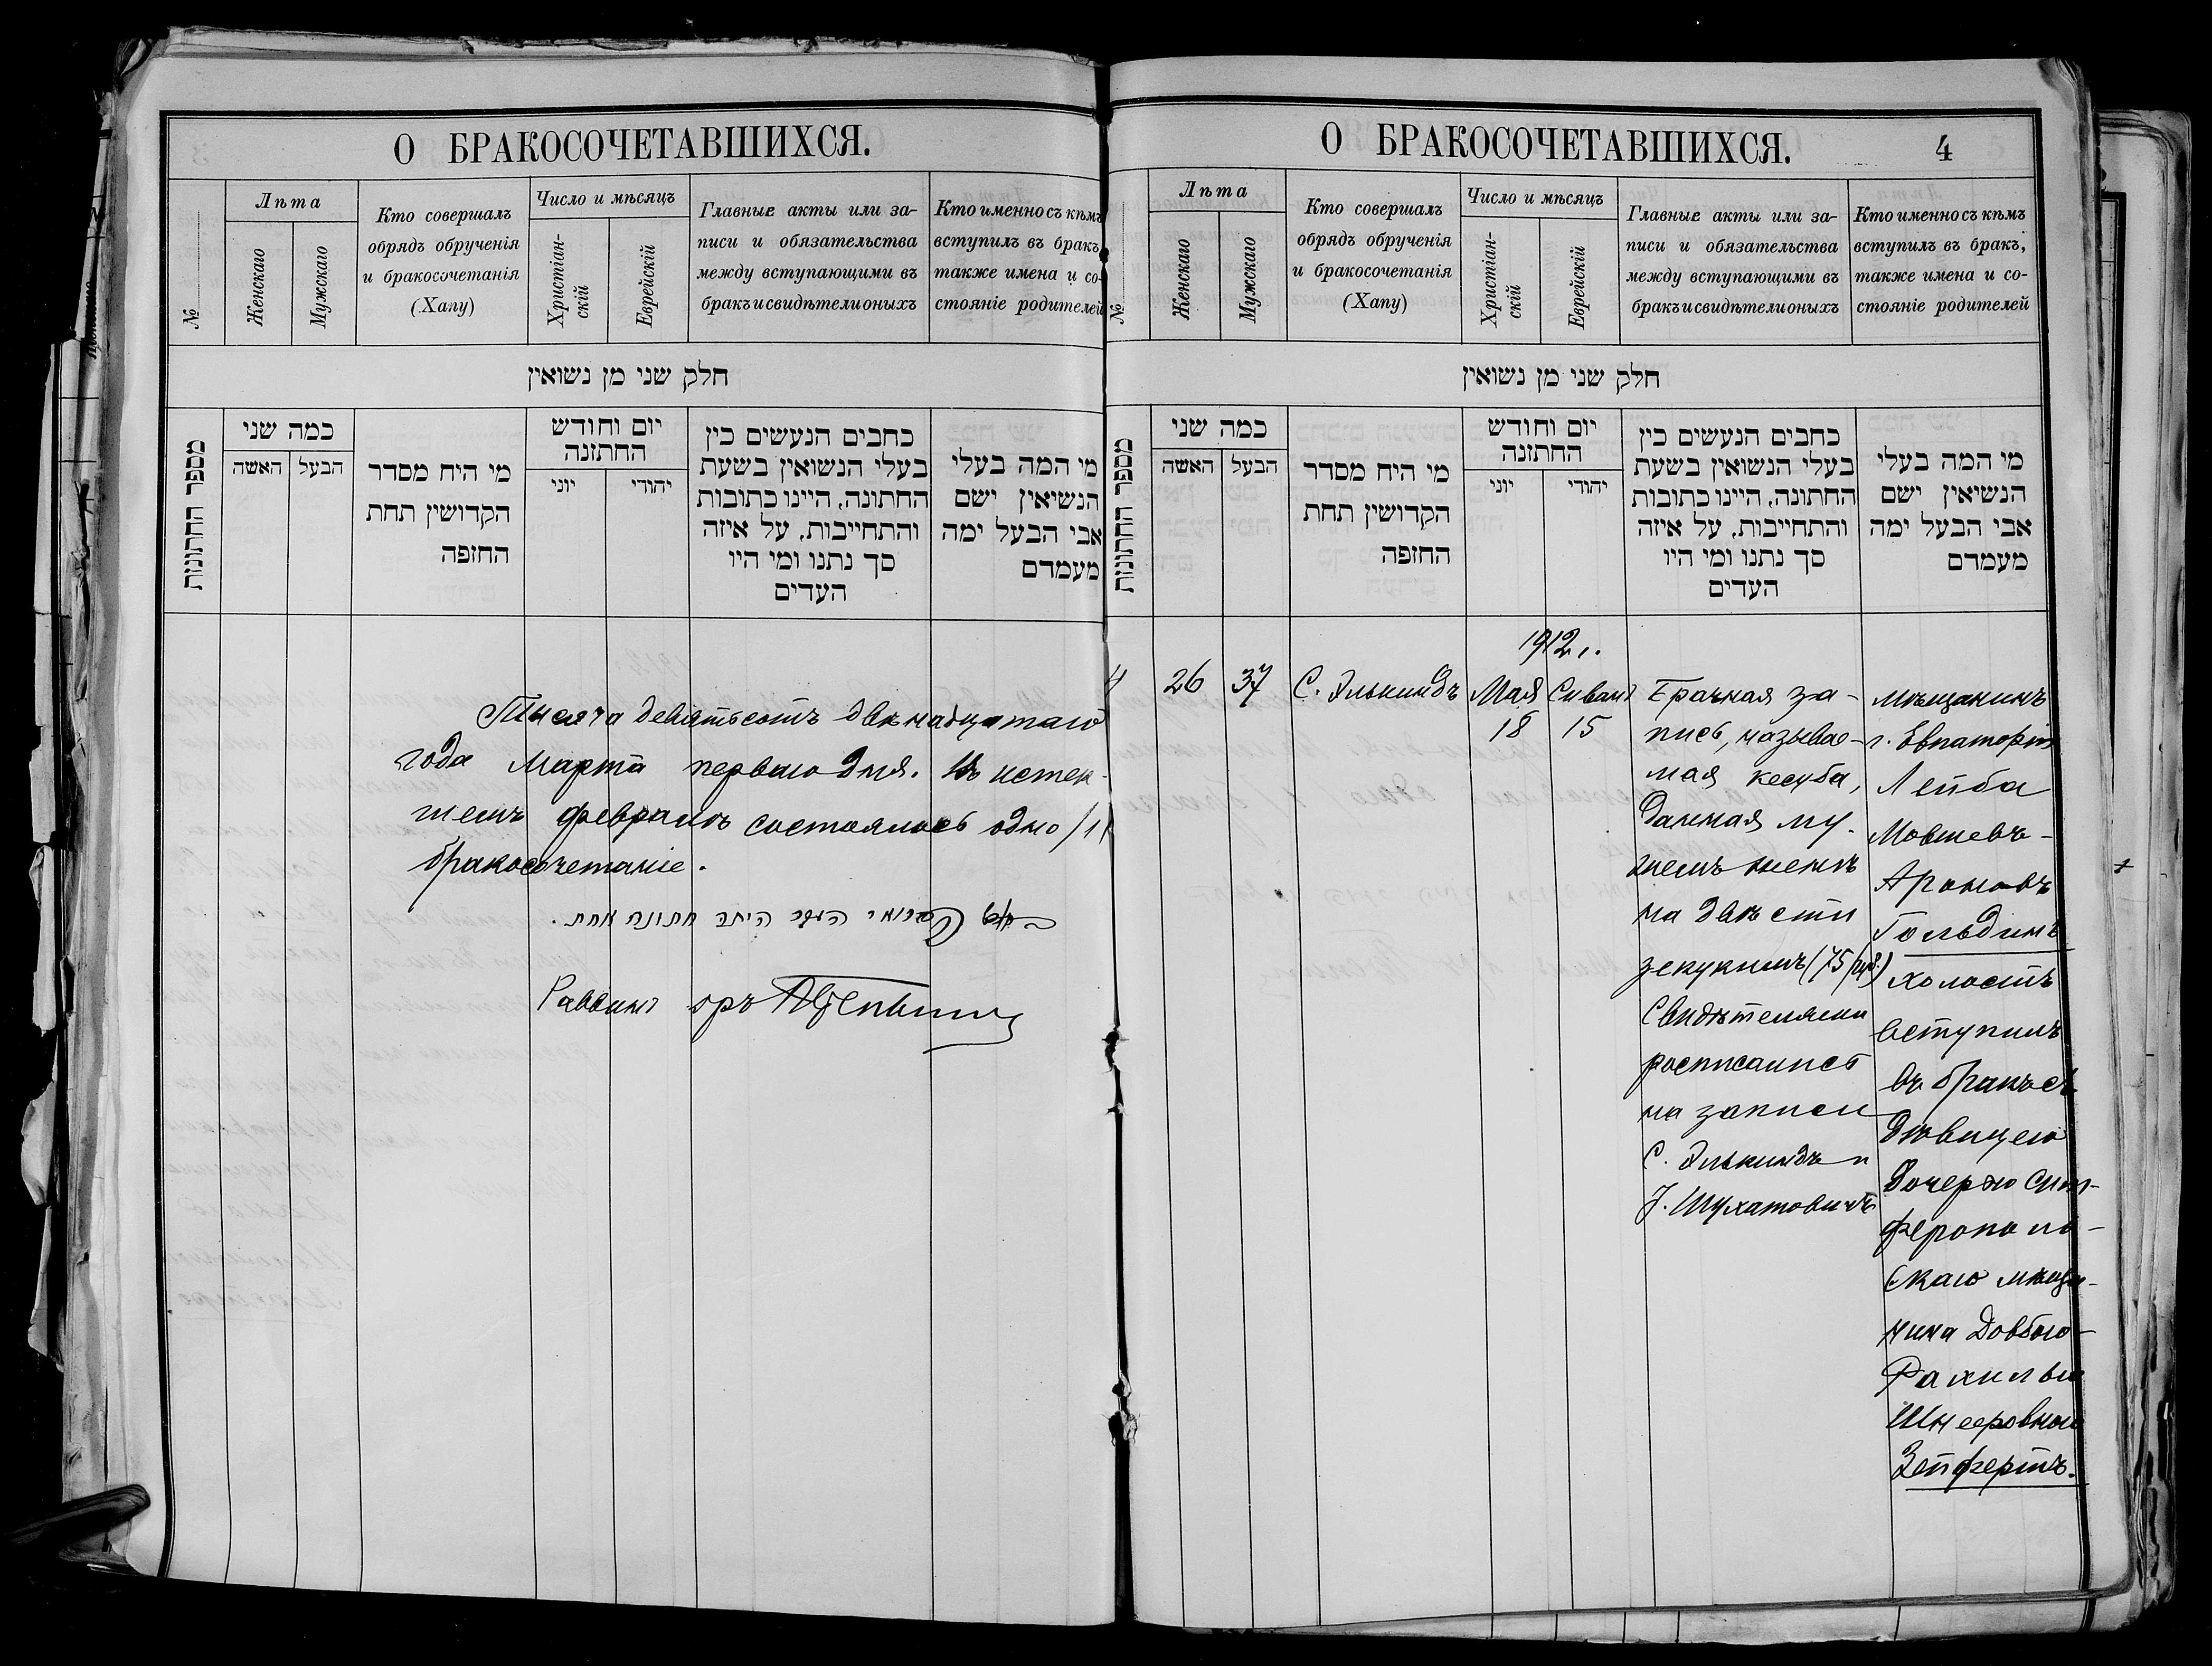 О БРАКОСОЧЕТАВШИХСЯ.
№
Лѣта
Женскаго
Мужскаго
Кто совершалъ
обрядъ обрученія
и бракосочетанія
(Хапу)
Число и мѣсяцъ
Христіан-
скій
Еврейскій
Главные акты или за-
писи и обязательства
между вступающими въ
бракъ и свидѣтели оныхъ
Кто именно съ кѣмъ
вступилъ въ бракъ,
также имена и со-
стояніе родителей
חלק שני מן נשואין
מספר החתונות
כמה שני
האשה
הבעל
מי היח מסדר
הקדושין תחת
החזפה
יום וחודש
החתזנה
יוני
יהודי
כחבים הנעשים כין
בעלי הנשואין בשעת
החתונה, היינו כתובות
והתחייבות, על איזה
סך נתנו ומי היו
העדים
מי המה בעלי
הנשיאין ישם
אבי הבעל ימה
מעמדם
Тысяча девятьсотъ двѣнадцатаго
года Марта перваго дня. Въ истек-
шемъ февралѣ состоялось одно /1/
бракосочетаніе.
היתה חתונה אחת.
Раввинъ
О БРАКОСОЧЕТАВШИХСЯ.
4
№
Лѣта
Женскаго
Мужскаго
Кто совершалъ
обрядъ обрученія
и бракосочетанія
(Хапу)
Число и мѣсяцъ
Христіан-
скій
Еврейскій
Главные акты или за-
писи и обязательства
между вступающими въ
бракъ и свидѣтели оныхъ
Кто именно съ кѣмъ
вступилъ въ бракъ,
также имена и со-
стояніе родителей
חלק שני מן נשואין
מספר החתונות
כמה שני
האשה
הבעל
מי היח מסדר
הקדושין תחת
החזפה
יום וחודש
החתזנה
יוני
יהודי
כחבים הנעשים כין
בעלי הנשואין בשעת
החתונה, היינו כתובות
והתחייבות, על איזה
סך נתנו ומי היו
העדים
מי המה בעלי
הנשיאין ישם
אבי הבעל ימה
מעמדם
1912 г.
4
26
37
С. Элькиндъ
Мая
18
Сивана
15
Брачная за-
пись, называе-
мая кесуба,
данная му-
жемъ женѣ
на двѣсти
зекукимъ (75 руб.)
Свидѣтелями
росписались
на записи
С. Элькиндъ и
I. Шухатовичъ
мѣщанинъ
г. Евпаторіи
Лейба
Мовшевъ-
Ароновъ
Гольдинъ
холостъ
вступилъ
въ бракъ съ
дѣвицею
дочерью сим-
ферополь-
скаго мѣща-
нина Довбою-
Рахилью
Шнееровною
Зейфертъ.